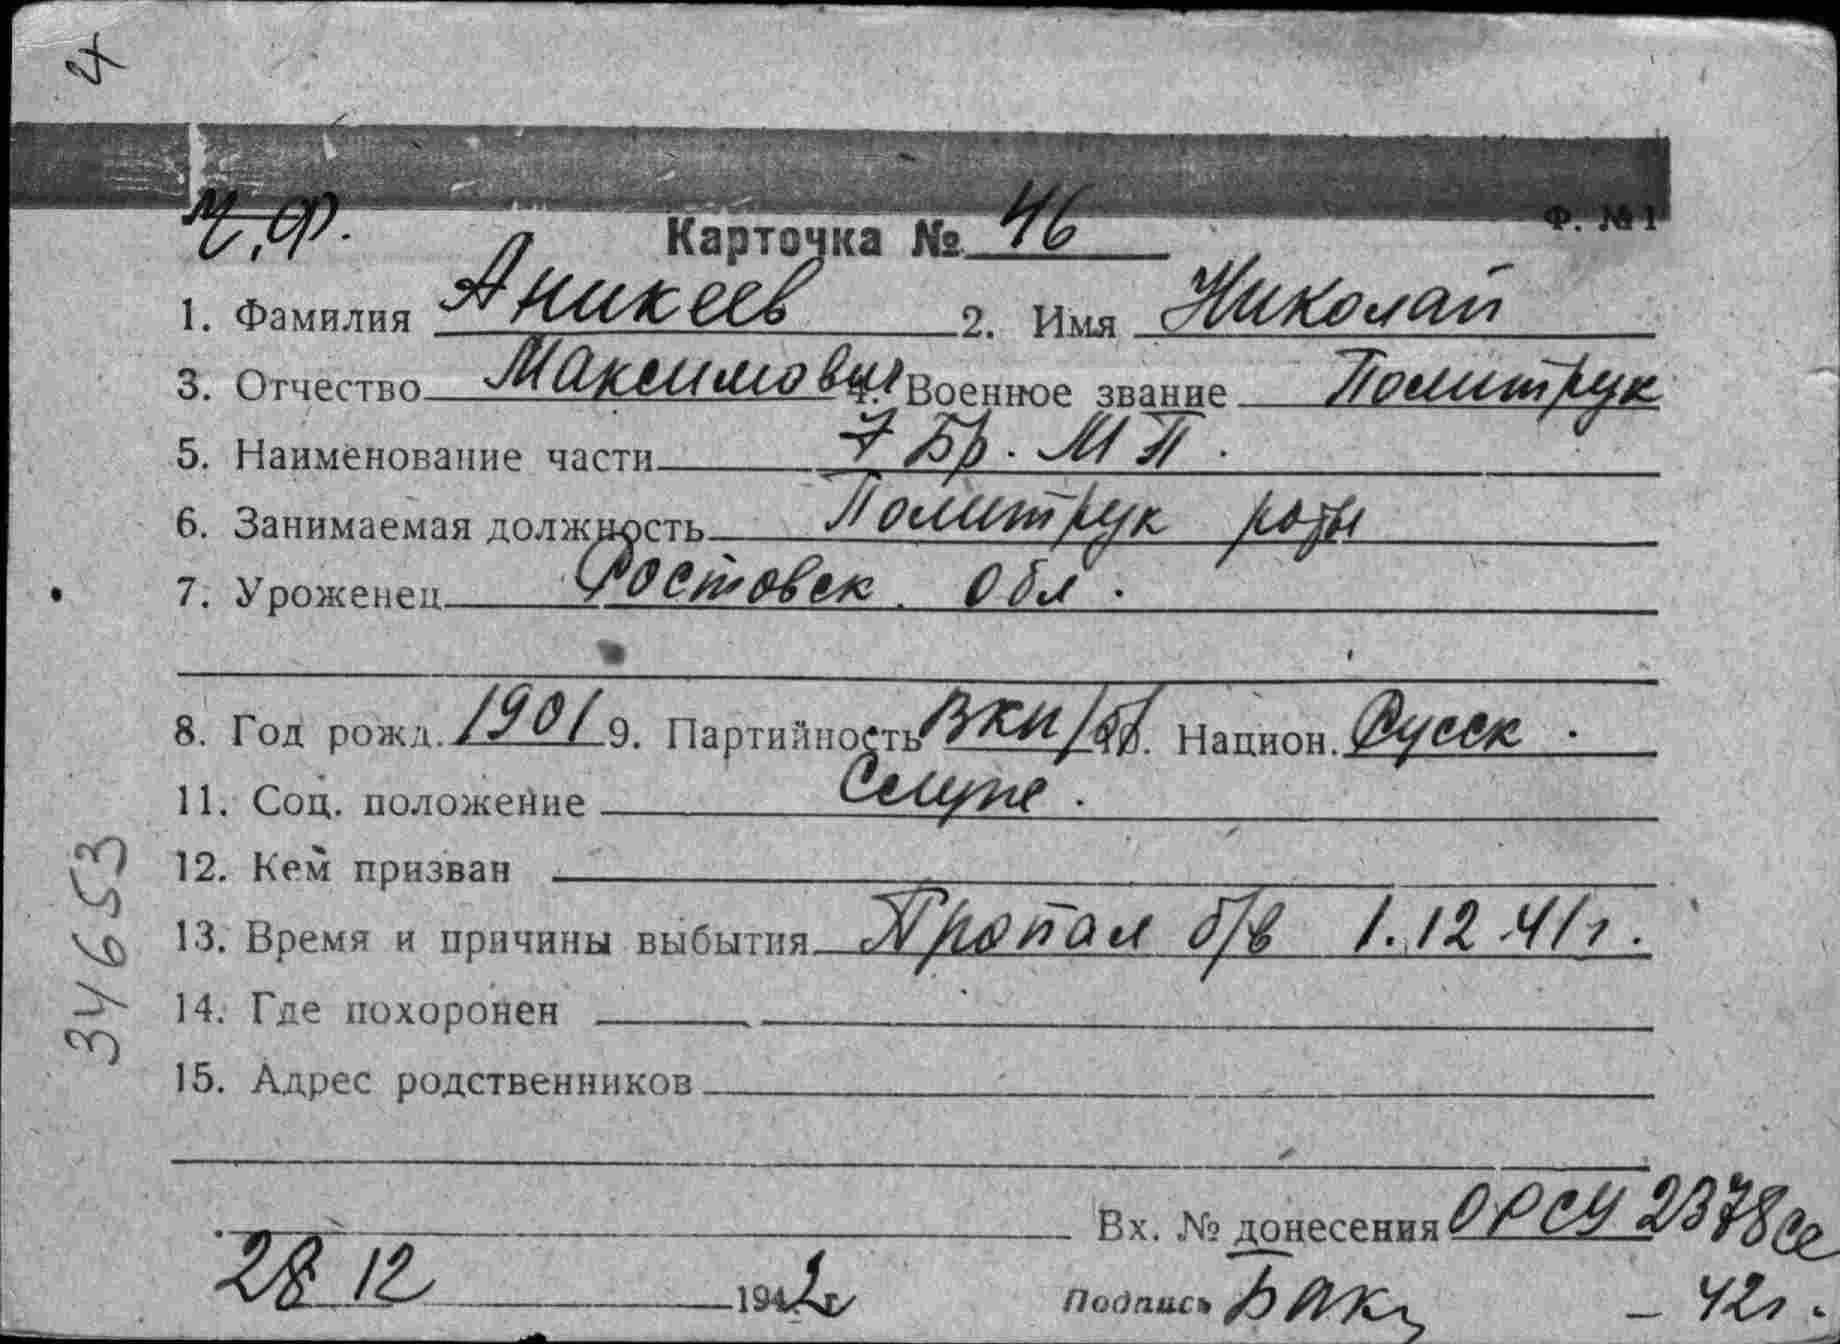 4
Ч.Ф.
Карточка № 46 Ф. № 1
1. Фамилия Аникеев 2. Имя Николай
3. Отчество Максимович 4. Военное звание Политрук
5. Наименование части 7 Бр. МП.
6. Занимаемая должность Политрук роты
7. Уроженец Ростовск. Обл.
8. Год рожд. 1901 9. Партийность ВКП/б/. Национ. Русск.
11. Соц. положение Служ.
12. Кем призван
13. Время и причины выбытия Пропал б/в 1.12.41г.
14. Где похоронен
15. Адрес родственников
Вх. № донесения ОРСУ 2378сс
28 12 1942г Подпись - 42г.
34653